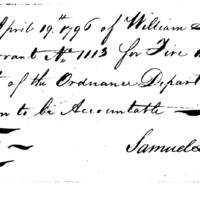 April 19.th 1796 of William
arrant No. 1113 for Five
t of the Ordnance Depart
n to be Accountable
Samuel